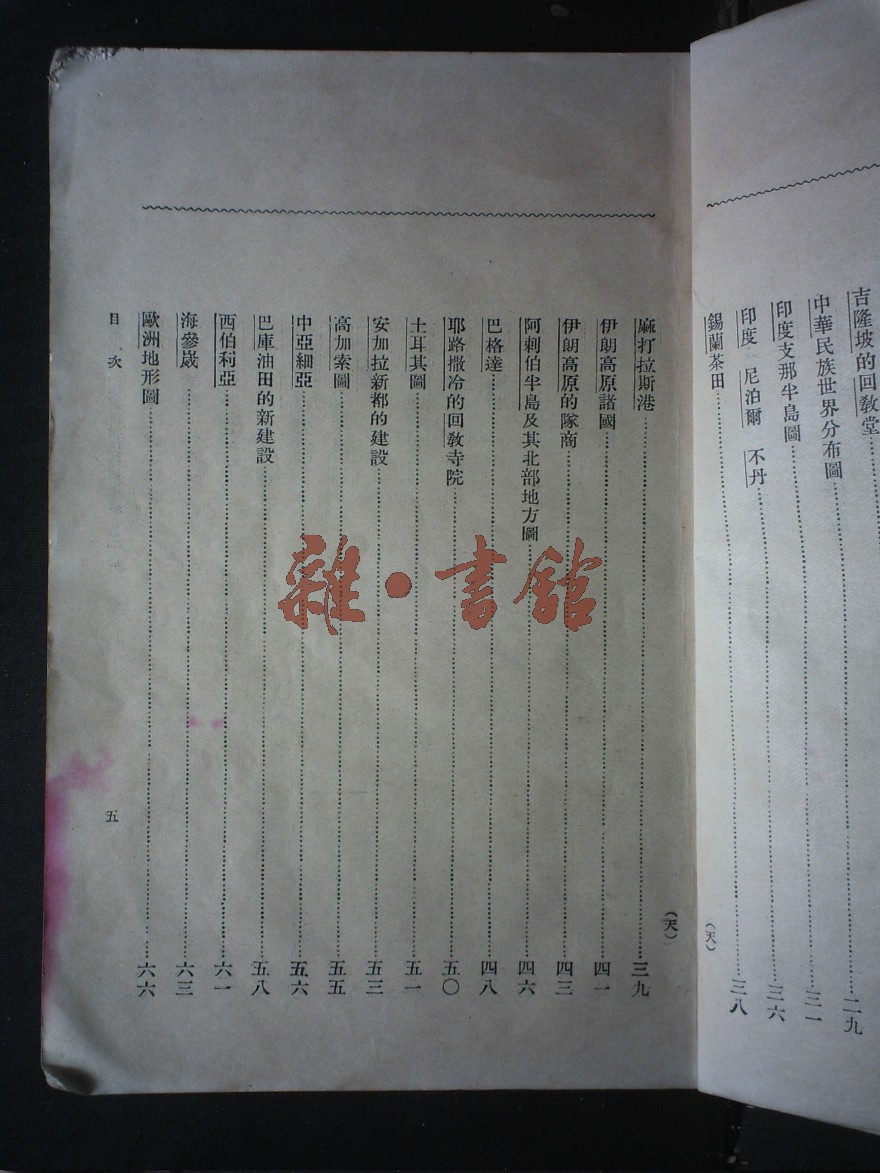 吉隆坡的回敎堂……二九
中華民族世界分布圖……三一
印度支那半島圖……三六
印度　尼泊爾　不丹
錫蘭茶田……三八
（天）
麻打拉斯港……三九
伊朗高原諸國……四一
伊朗高原的隊商……四三
阿剌伯半島及其北部地方圖……四六
巴格達……四八
耶路撒冷的回敎寺院……五〇
土耳其圖……五一
安加拉新都的建設……五三
高加索圖……五五
中亞細亞……五六
巴庫油田的新建設……五八
西伯利亞……六一
海參崴……六三
歐洲地形圖……六六
（天）
目次
五
雜·書館